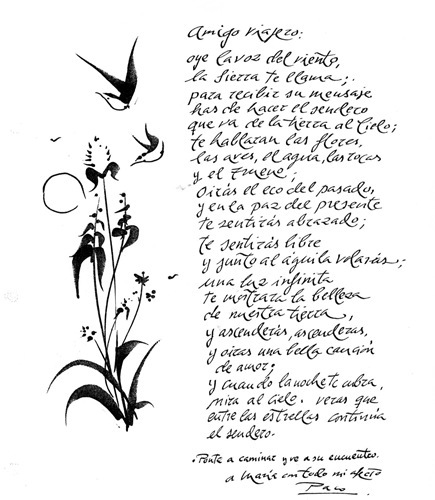 Amigo viajero:
oye la voz del viento,
la Sierra te llama;.
para recibir su mensaje
has de hacer el sendero
que va de la tierra al Cielo;
te hablaran las flores,
las aves, el agua, las rocas
y el
Oirás el eco del pasado,
y en la paz del presente
te sentirás abrazado;
te sentirás libre
y junto al águila volarás;
una luz infinita
te mostrará la belleza
de nuestra tierra,
y ascenderás, ascenderas,
y oiras una bella canción
de amor;
y cuando la noche te cubra,
mira al cielo. veras que
entre las estrellas continúa
el sendero.
. Ponte a caminar y ve a su encuentro.
a María con todo mi afecto
Paco